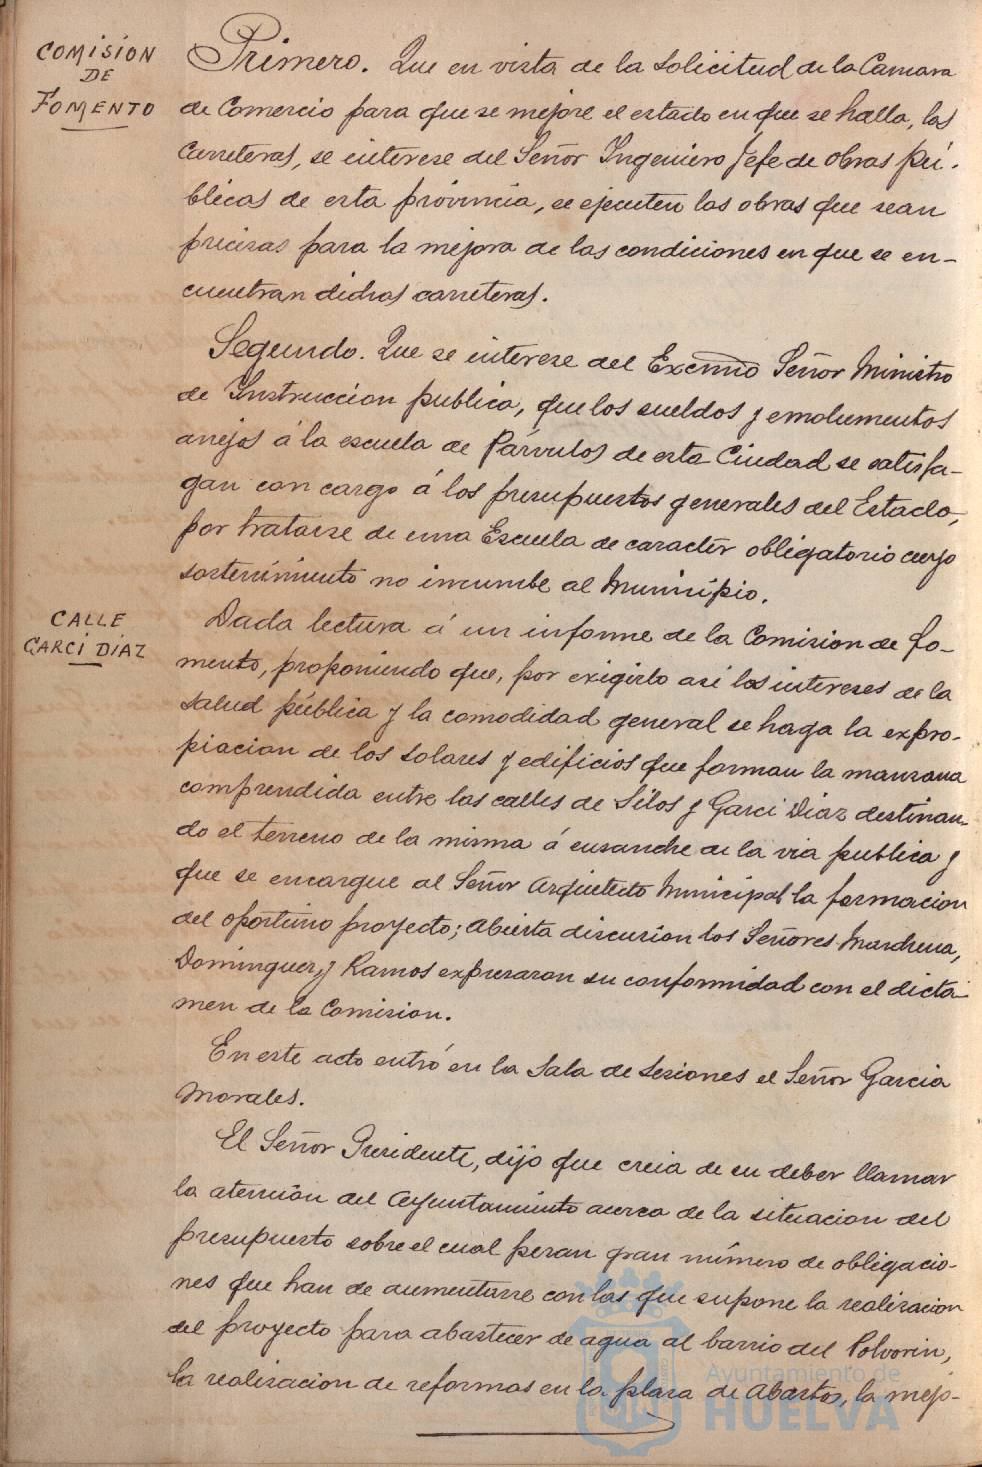 COMISIÓN
DE
FOMENTO
Primero. Que en vista de la solicitud de la Camara
de Comercio para que se mejore el estado en que se halla, las
carreteras, se interese del Señor Ingeniero Jefe de obras pú-
blicas de esta provincia, se ejecuten las obras que sean
precisas para la mejora de las condiciones en que se en-
cuentran dichas carreteras.
Segundo. Que se interese del Excmo Señor Ministro
de Instruccion publica, que los sueldos y emolumentos
anejos á la escuela de Párvulos de esta Ciudad se satisfa-
gan con cargo á los presupuestos generales del Estado,
por tratarse de una Escuela de caracter obligatorio cuyo
sostenimiento no incumbe al Municipio.
CALLE
GARCI DÍAZ
Dada lectura á un informe de la Comision de fo-
mento, proponiendo que, por exigirlo asi los intereses de la
salud pública y la comodidad general se haga la expro-
piacion de los solares y edificios que forman la manzana
comprendida entre las calles de Silos y Garci Diaz destinan-
do el terreno de la misma á ensanche de la via publica y
que se encargue al Señor Arquitecto Municipal la formacion
del oportuno proyecto; abierta discusion los Señores Marchena,
Dominguez y Ramos expresaron su conformidad con el dicta-
men de la Comision.
En este acto entró en la Sala de Sesiones el Señor Garcia
Morales.
El Señor Presidente, dijo que creia de su deber llamar
la atencion del Ayuntamiento acerca de la situacion del
presupuesto sobre el cual pesan gran número de obligacio-
nes que han de aumentarse con las que supone la realizacion
del proyecto para abastecer de agua al barrio del Polvorin,
la realizacion de reformas en la plaza de Abastos, la mejo-
Ayuntamiento de
HUELVA